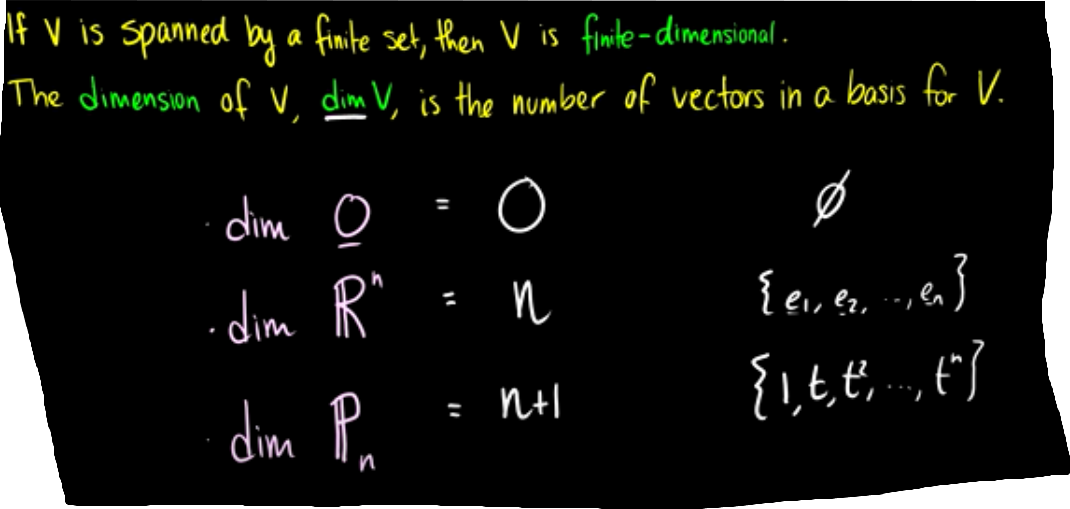 If V is spanned by a finite set, then V is finite-dimensional.
The dimension of V, dim V, is the number of vectors in a basis for V.
· dim 0 = 0 ∅
· dim ℝⁿ = n {e₁, e₂, ..., eₙ}
· dim ℙₙ = n+1 {1, t, t², ..., tⁿ}